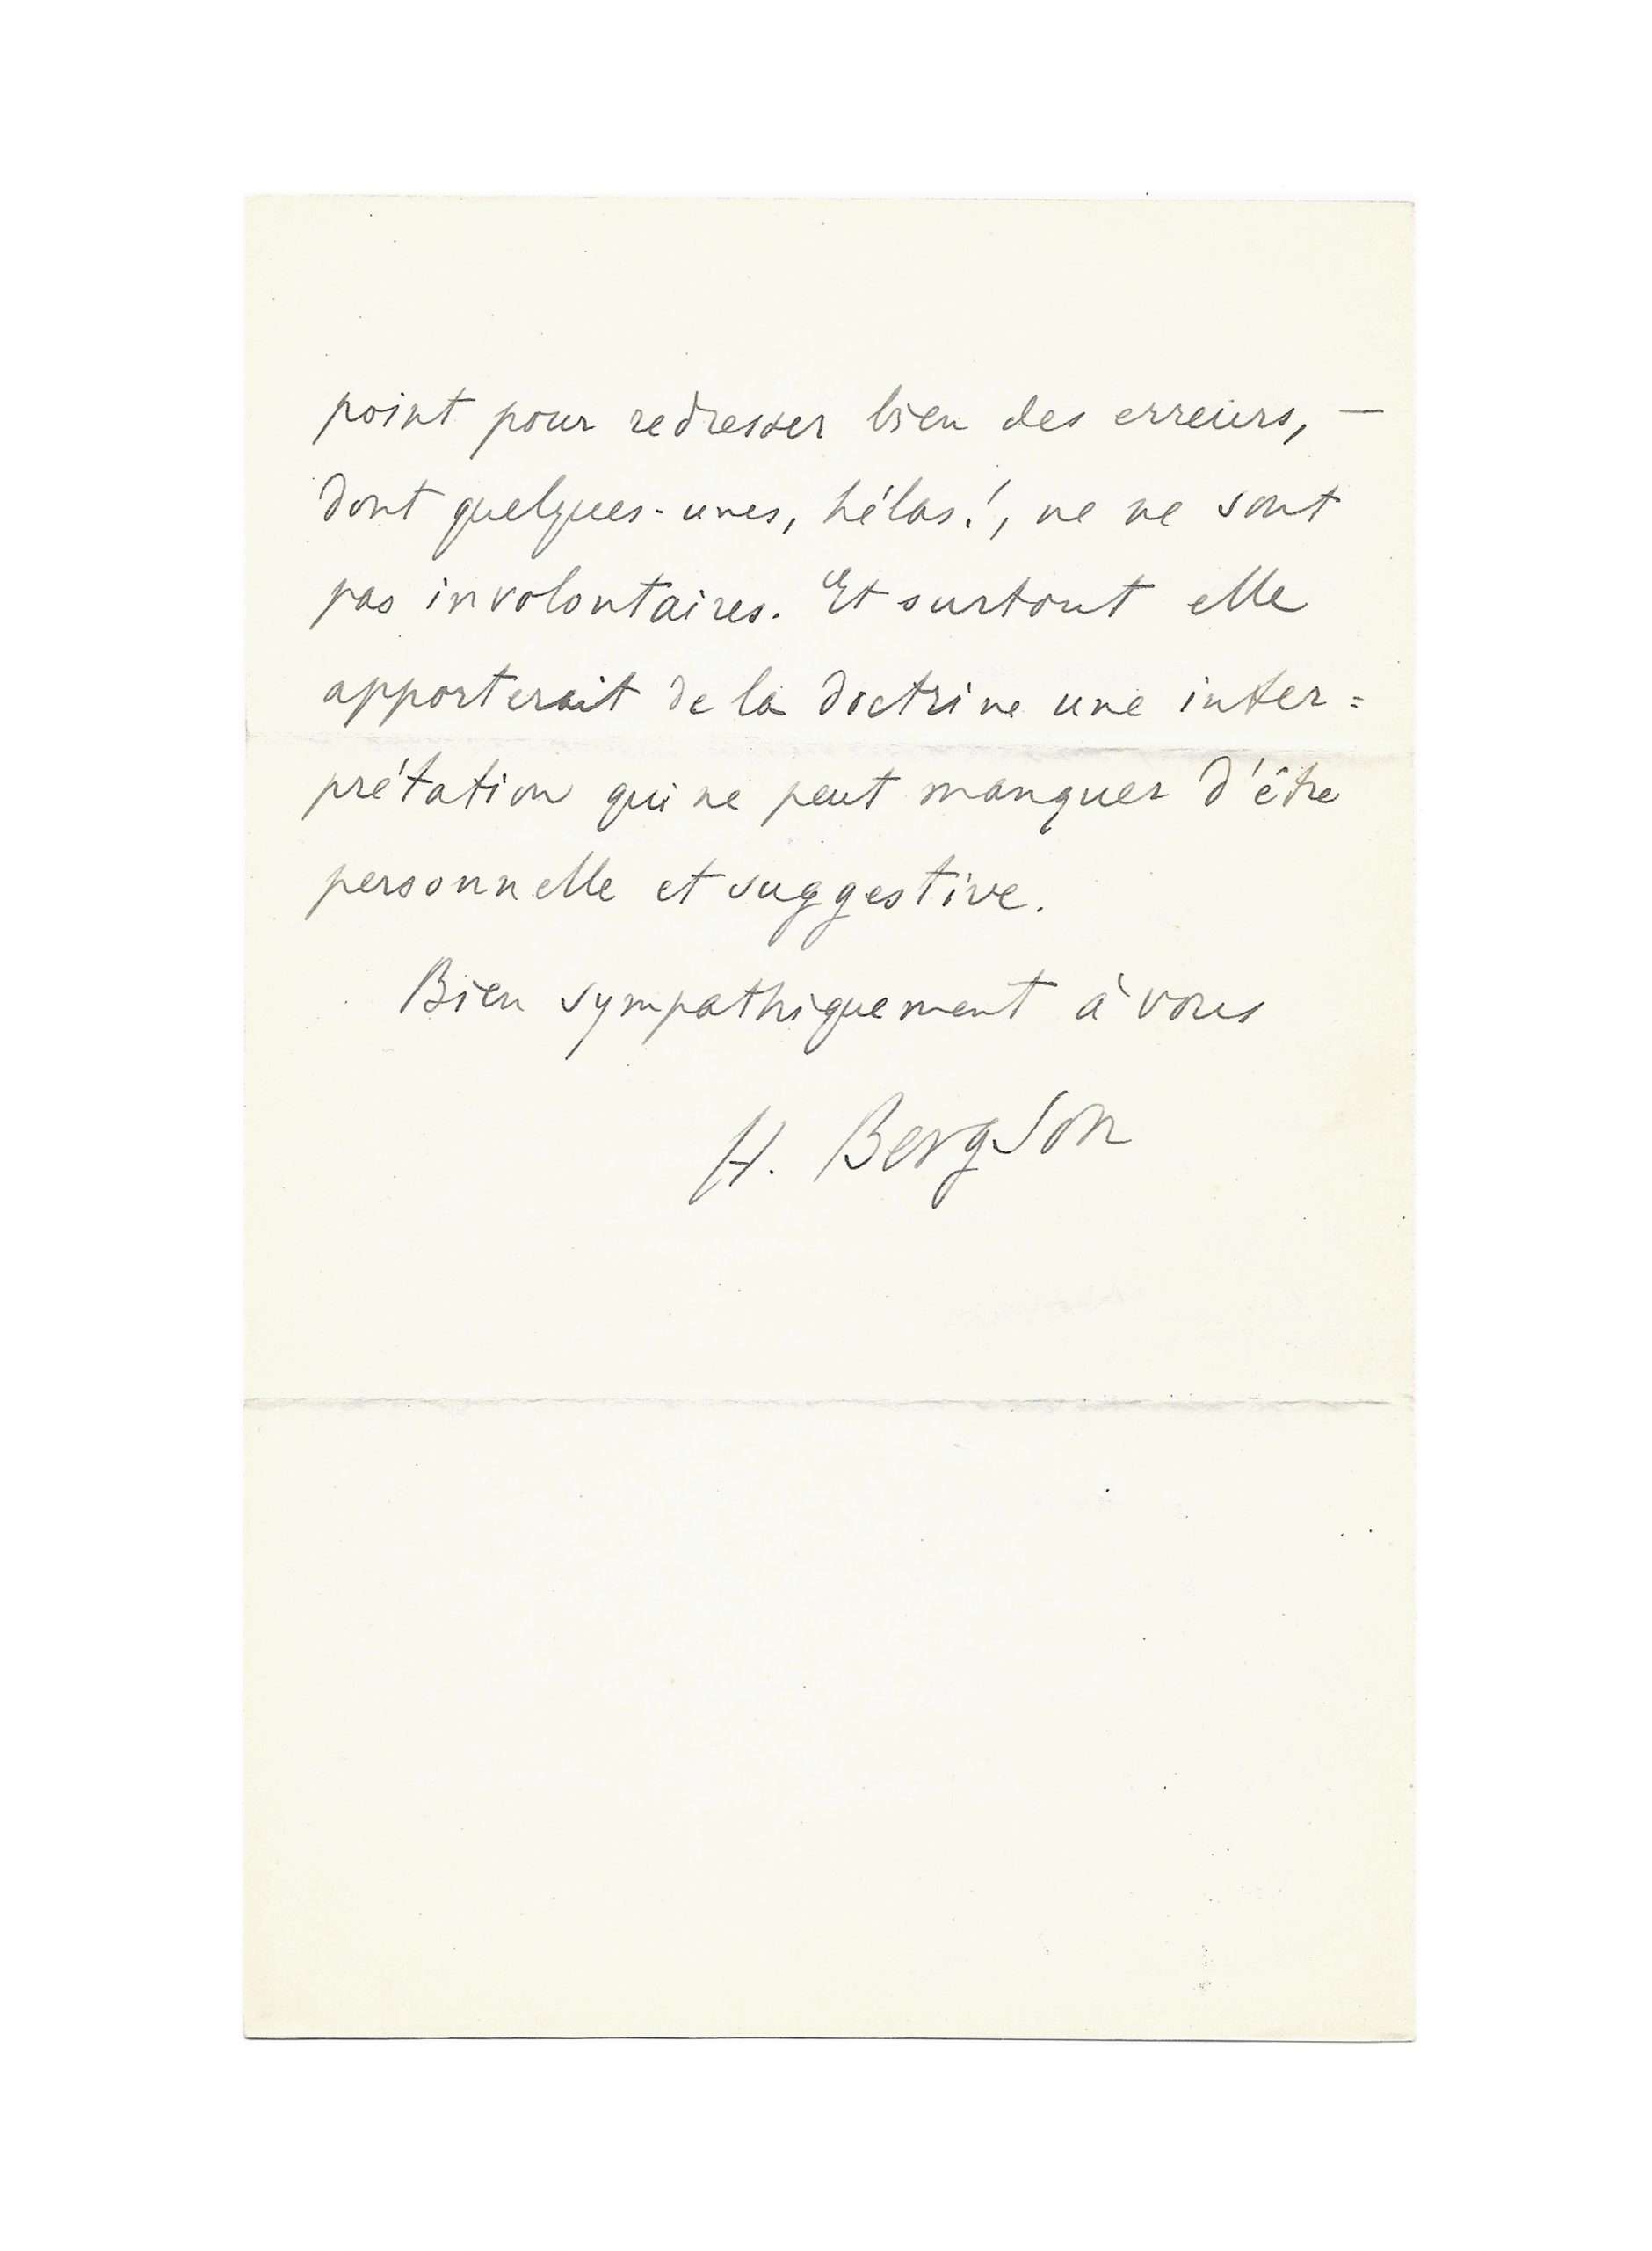 point pour redresser bien des erreurs, —
dont quelques-unes, hélas!, ne ne sont
pas involontaires. Et surtout elle
apporterait de la doctrine une inter=
prétation qui ne peut manquer d'être
personnelle et suggestive.
Bien sympathiquement à vous
H. Bergson